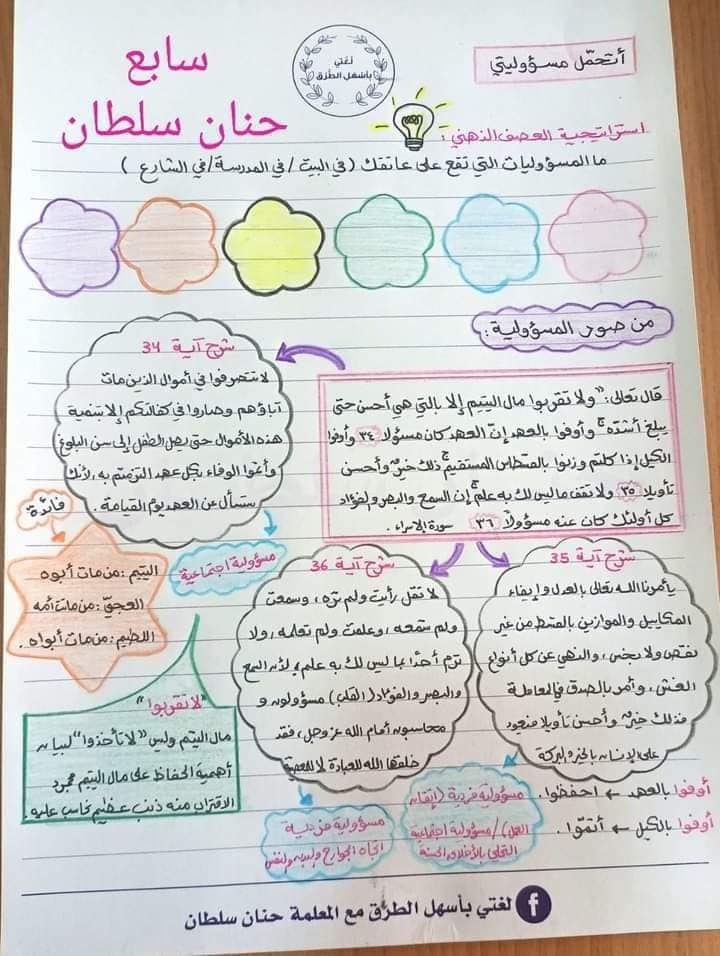 أتحمّل مسؤوليتي
لغتي
بأسهل الطرق
سابع
حنان سلطان
استراتيجية العصف الذهني :
ما المسؤوليات التي تقع على عاتقك ( في البيت / في المدرسة / في الشارع )
من صور المسؤولية :
قال تعالى : " ولا تقربوا مال اليتيم إلا بالتي هي أحسن حتى
يبلغ أشدّه وأوفوا بالعهد إنّ العهد كان مسؤولا ٣٤ وأوفوا
الكيل إذا كلتم وزنوا بالقسطاس المستقيم ذلك خيرٌ وأحسن
تأويلا ٣٥ ولا تقف ما ليس لك به علم إن السمع والبصر والفؤاد
كل أولئك كان عنه مسؤولاً ٣٦ سورة الإسراء .
شرح آية 34
لا تتصرفوا في أموال الذين مات
آباؤهم وصاروا في كفالتكم إلا بتنمية
هذه الأموال حتى يصل الطفل إلى سن البلوغ
وأتمّوا الوفاء بكل عهد التزمتم به ، لأنك
ستسأل عن العهد يوم القيامة .
مسؤولية اجتماعية
فائدة
اليتيم : من مات أبوه
العجيّ : من ماتت أمه
اللطيم : من مات أبواه .
"لا تقربوا"
مال اليتيم وليس "لا تأخذوا" لبيان
أهمية الحفاظ على مال اليتيم فمجرد
الاقتراب منه ذنب عظيم نحاسب عليه .
شرح آية 36
لا تقل رأيت ولم تره ، وسمعت
ولم تسمعه ، وعلمت ولم تعلمه ، ولا
ترمِ أحدًا بما ليس لك به علم ، لأن السمع
والبصر والفؤاد ( القلب ) مسؤولون و
محاسبون أمام الله عز وجل ، فقد
خلقها الله للعبادة لا للمعصية
مسؤولية فردية
اتجاه الجوارح
شرح آية 35
يأمرنا الله تعالى بالعدل وإيفاء
المكاييل والموازين بالقسط من غير
نقص ولا بخس ، والنهي عن كل أنواع
الغش ، وأمر بالصدق في المعاملة
فذلك خيرٌ وأحسن تأويلا فتعود
على الإنسان بالخير والبركة
مسؤولية فردية ( إتقان
العمل ) / مسؤولية اجتماعية
التحلي بالأخلاق الحسنة
أوفوا بالعهد ← احفظوا .
أوفوا بالكيل ← أتمّوا .
لغتي بأسهل الطرق مع المعلمة حنان سلطان